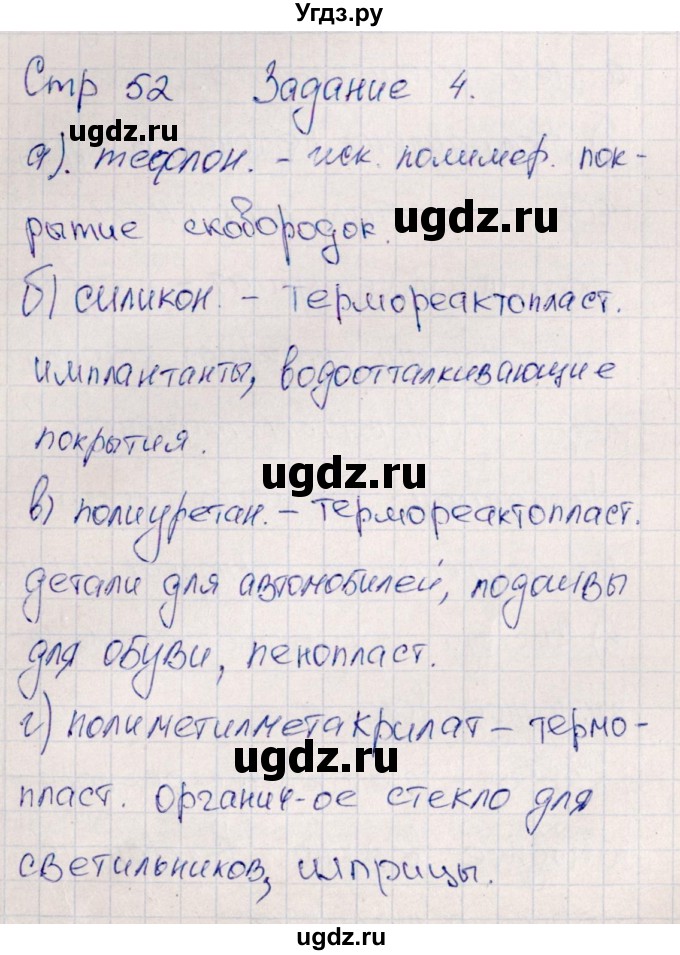 Угдз.ру
Стр 52 Задание 4.
ugdz.ru
а). тефлон. - иск. полимер. пок-
ugdz.ru
рытие сковородок.
б) силикон. - термореактопласт.
имплантанты, водоотталкивающие
покрытия.
ugdz.ru
в) полиуретан. - термореактопласт.
детали для автомобилей, подошвы
для обуви, пенопласт.
г) полиметилметакрилат - термо-
ugdz.ru
пласт. Органич-ое стекло для
светильников, шприцы.
ugdz.ru